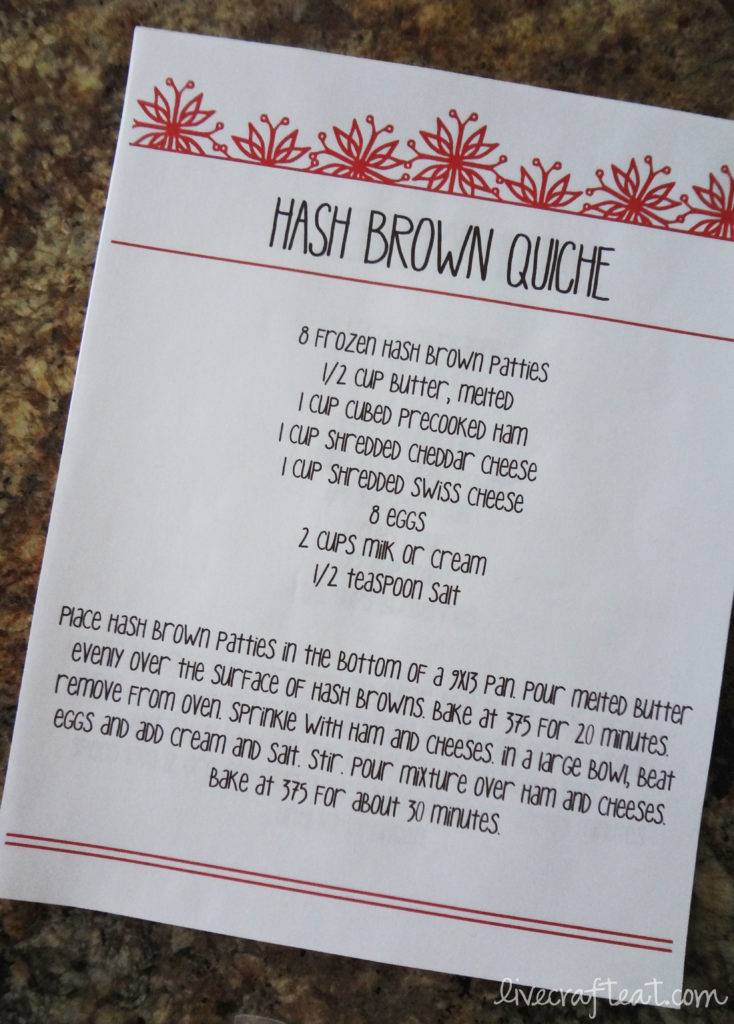 HASH BROWN QUICHE
8 Frozen Hash Brown Patties
1/2 cup Butter, melted
1 cup cubed precooked Ham
1 cup Shredded Cheddar Cheese
1 cup Shredded Swiss Cheese
8 eggs
2 cups milk or cream
1/2 teaspoon salt
Place Hash Brown Patties in the bottom of a 9x13 pan. Pour melted butter
evenly over the surface of hash browns. Bake at 375 for 20 minutes.
Remove from oven. Sprinkle with ham and cheeses. In a large bowl, beat
eggs and add cream and salt. Stir. Pour mixture over ham and cheeses.
Bake at 375 for about 30 minutes.
livecrafteat.com